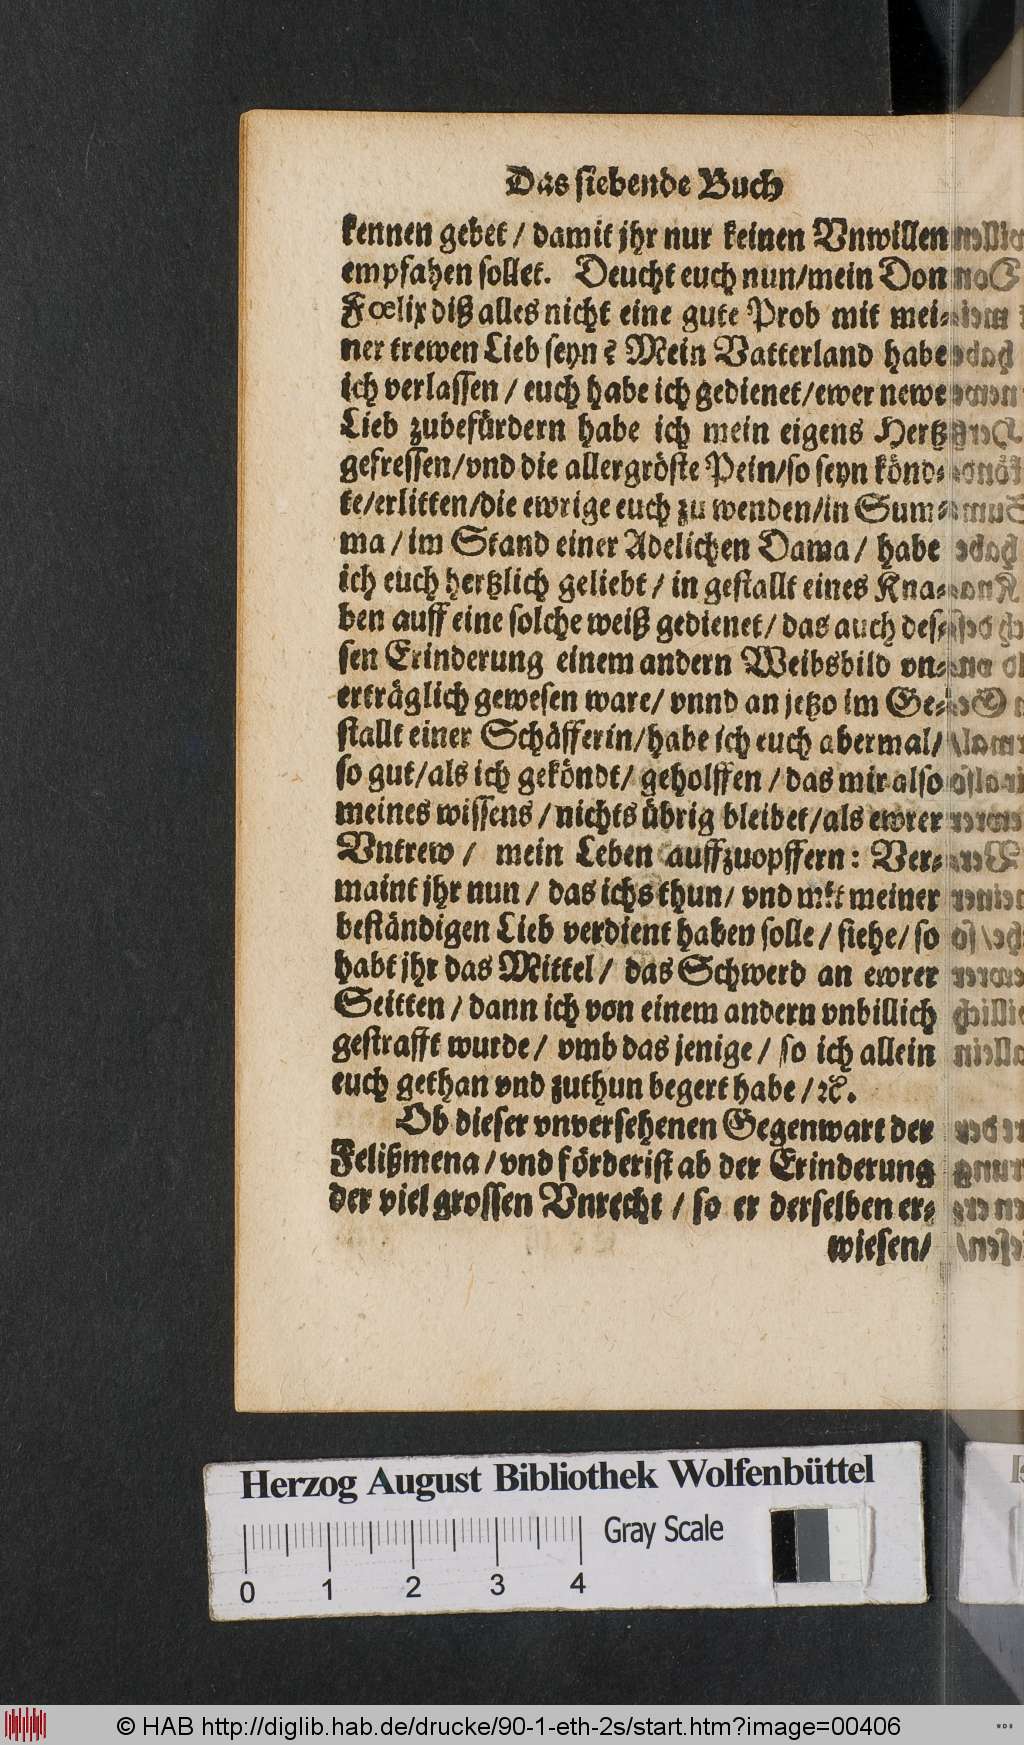 Das siebende Buch
kennen gebet / damit jhr nur keinen Vnwillen
empfahen sollet. Deucht euch nun/mein Don
Fœlix diß alles nicht eine gute Prob mit mei-
ner trewen Lieb seyn? Mein Vatterland habe
ich verlassen / euch habe ich gedienet/ewer newe
Lieb zubefürdern habe ich mein eigens Hertz
gefressen/vnd die allergröste Pein/so seyn könd-
te/erlitten/die ewrige euch zu wenden/in Sum-
ma / im Stand einer Adelichen Dama / habe
ich euch hertzlich geliebt / in gestallt eines Kna-
ben auff eine solche weiß gedienet / das auch des-
sen Erinderung einem andern Weibsbild vn-
erträglich gewesen ware/ vnnd an jetzo im Ge-
stallt einer Schäfferin/habe ich euch abermal/
so gut/als ich geköndt/ geholffen / das mir also
meines wissens / nichts übrig bleibet/als ewrer
Vntrew / mein Leben auffzuopffern: Ver-
maint jhr nun / das ichs thun/ vnd mit meiner
beständigen Lieb verdient haben solle / siehe/ so
habt jhr das Mittel / das Schwerd an ewrer
Seitten / dann ich von einem andern vnbillich
gestrafft wurde / vmb das jenige / so ich allein
euch gethan vnd zuthun begert habe / ꝛc.
Ob dieser vnversehenen Gegenwart der
Felißmena / vnd förderist ab der Erinderung
der viel grossen Vnrecht / so er derselben er-
wiesen/
Herzog August Bibliothek Wolfenbüttel
Gray Scale
0 1 2 3 4
© HAB http://diglib.hab.de/drucke/90-1-eth-2s/start.htm?image=00406